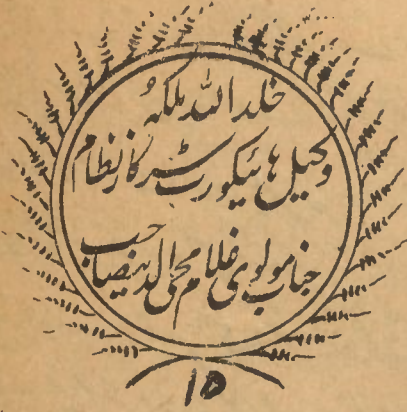 خلد اللہ ملکہ
وکیل ہائیکورٹ سرکار نظام
جناب مولوی غلام محی الدین صاحب
۱۵